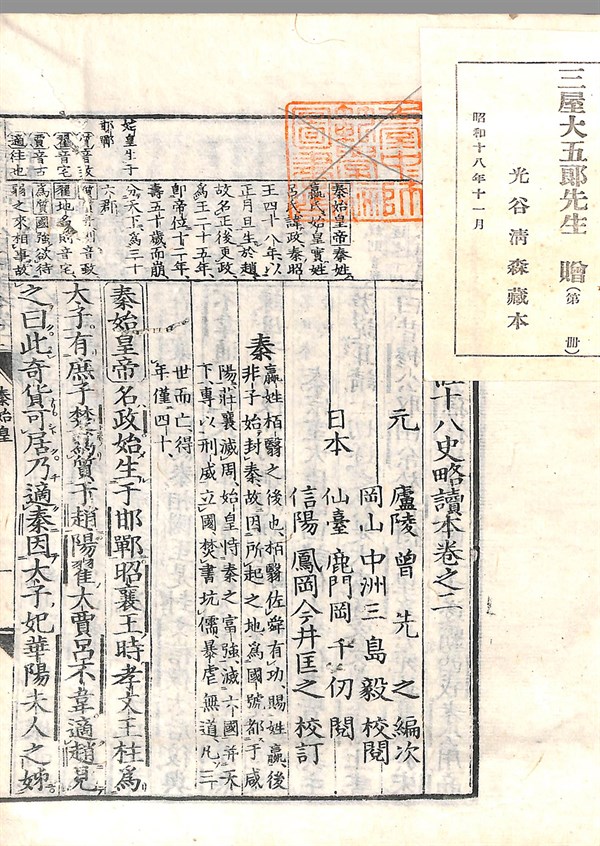 三屋大五郎先生 贈(第 冊)
光谷清森藏本
昭和十八年十一月
十八史略讀本卷之二
元 廬陵 曾先之 編次
岡山 中洲三島毅 校閱
日本 仙臺 鹿門岡千仞 閱
信陽 鳳岡今井匡之 校訂
秦 嬴姓栢翳之後也、栢翳佐舜有功、賜姓嬴、後
非子始封秦、故因所起之地、爲國號、都于咸
陽、莊襄滅周、始皇恃秦之富強、滅六國、并天
下、專以刑威立國、焚書坑儒、暴虐無道、凡三
世而亡、得
年僅四十、
秦始皇帝名政始生于邯鄲昭襄王時孝文王柱爲
太子有庶子楚爲質于趙陽翟大賈呂不韋適趙見
之曰此奇貨可居乃適秦因太子妃華陽夫人之姊
秦始皇帝秦姓
嬴氏始皇實姓
呂氏諱政秦昭
王四十八年、以
正月旦生於趙
故名正後更政
爲王二十五年、
即帝位十二年、
壽五十歳而崩
分天下、爲三十
六郡
音致
翟地名 音宅
爲質國強欲待
弱之來相事故
始皇生于
邯鄲
質音致
翟音宅
賈音古
適往也
秦始皇